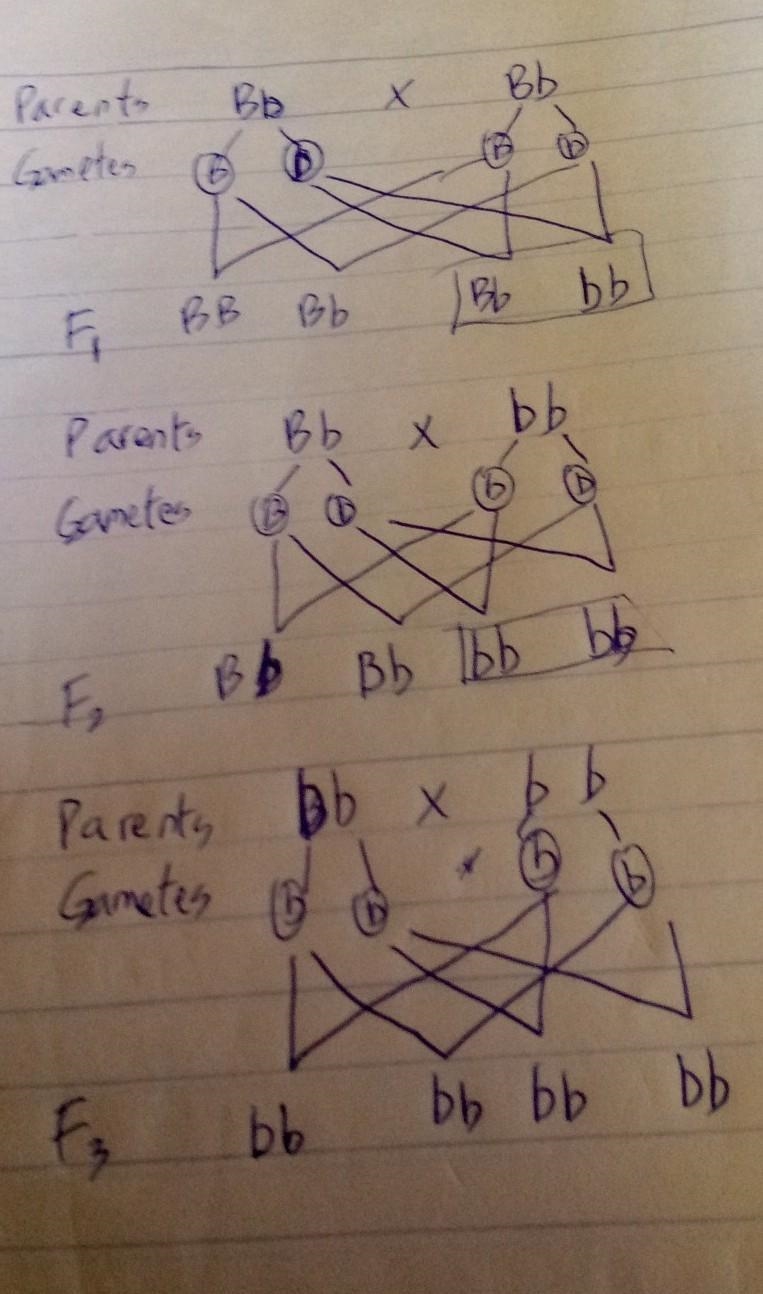 Parents Bb x Bb
Gametes B b B b
F1 BB Bb Bb bb
Parents Bb x bb
Gametes B b b b
F2 Bb Bb bb bb
Parents bb x bb
Gametes b b b b
F3 bb bb bb bb